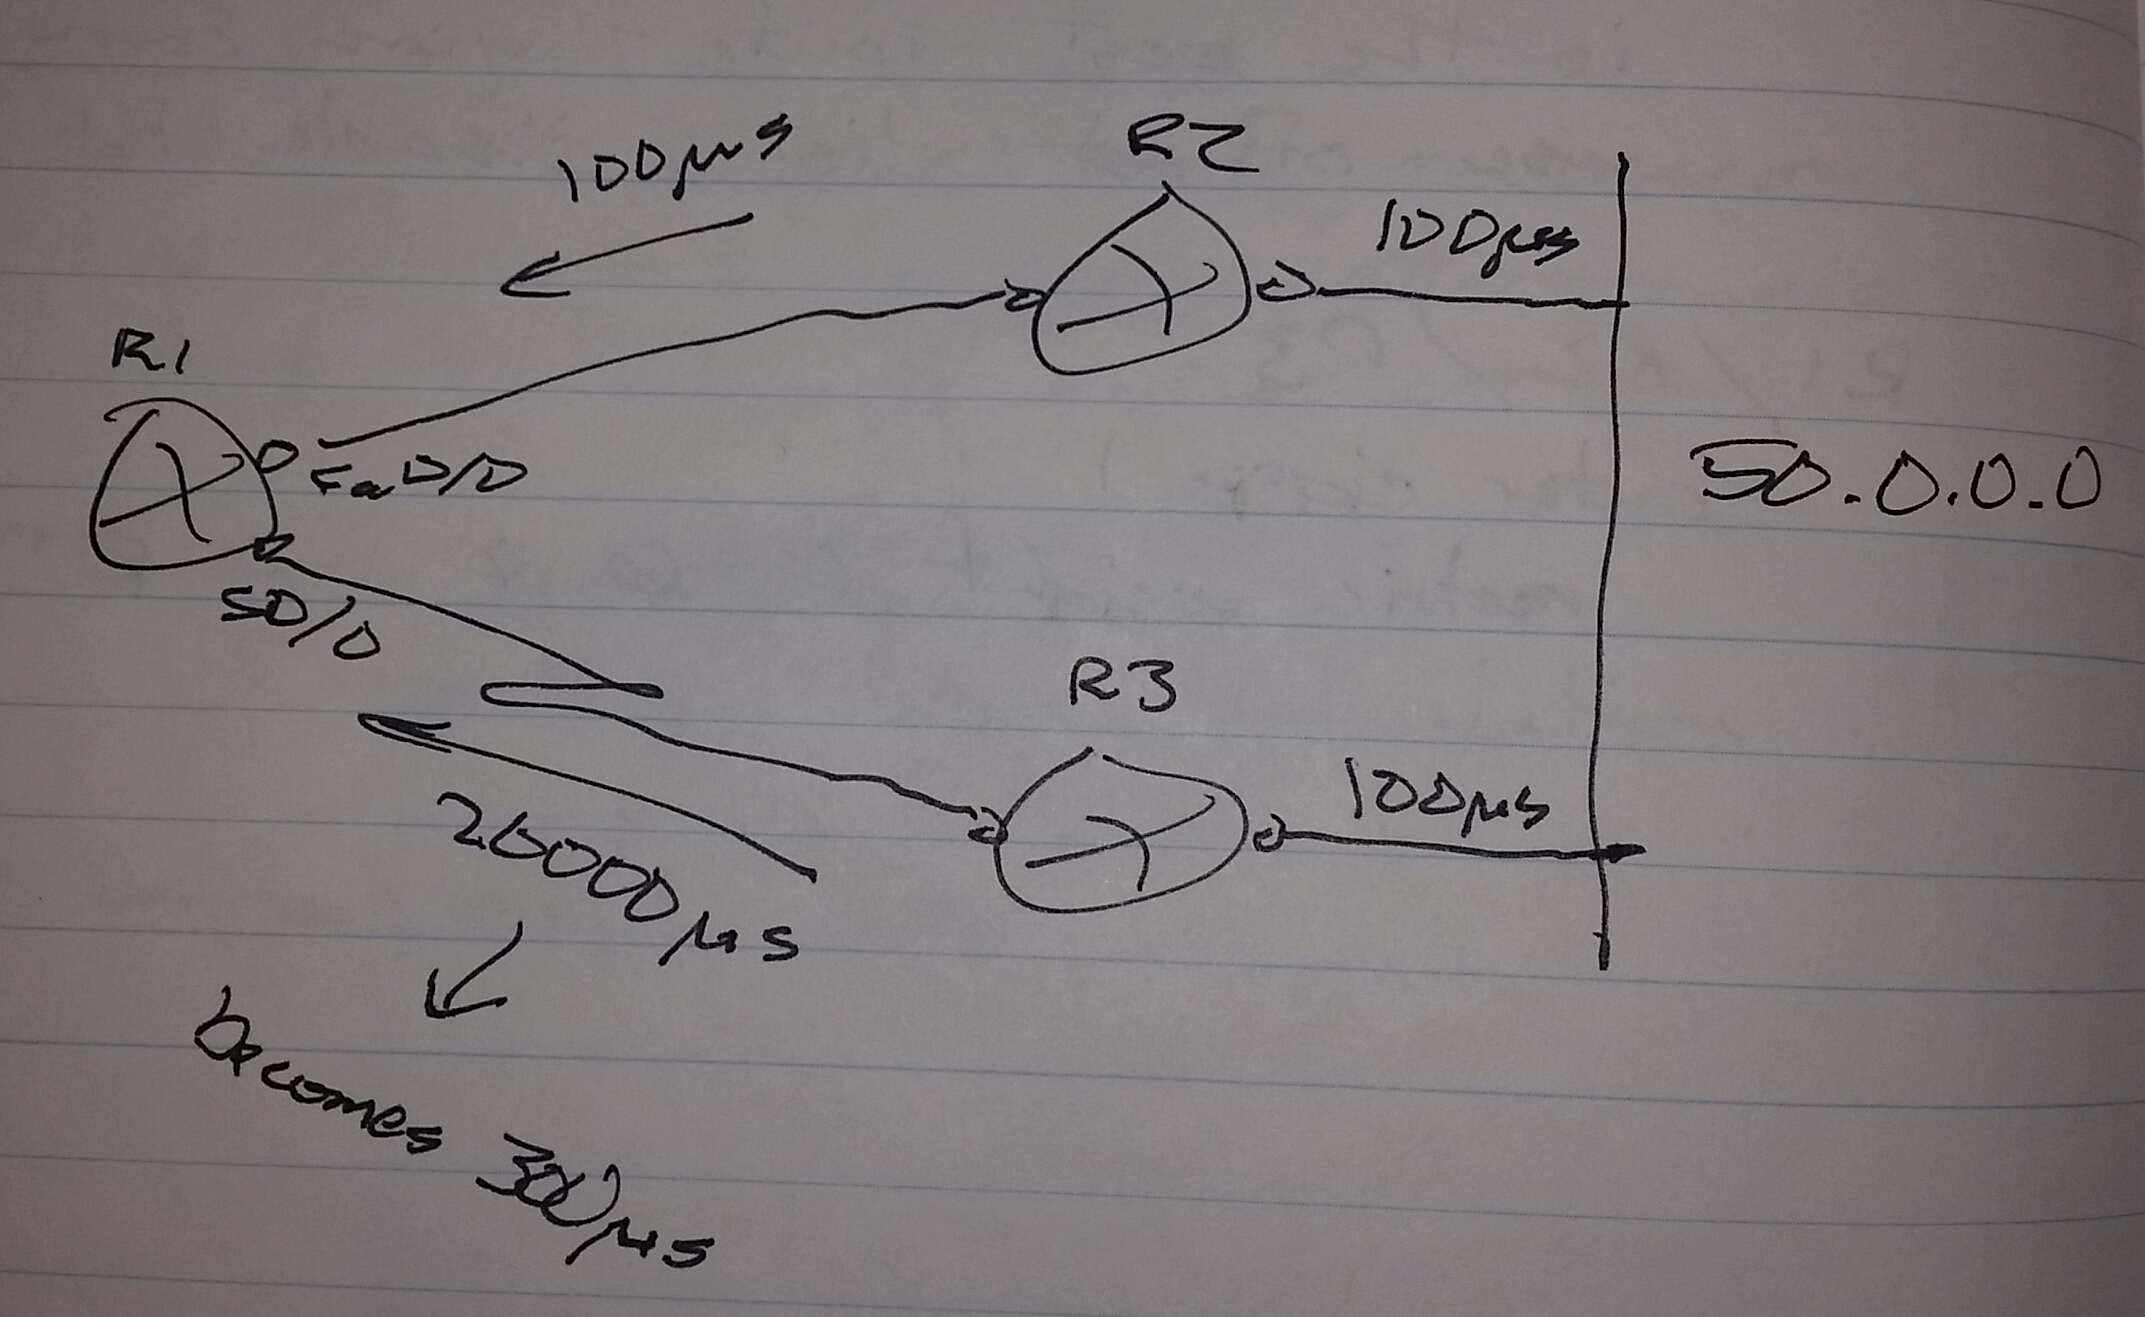 100μs
R2
100μs
R1
Fa0/0
50.0.0.0
S0/0
R3
100μs
20000μs
becomes 300μs